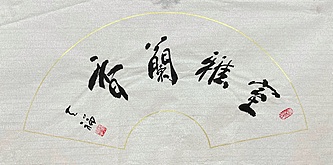 室雅蘭香